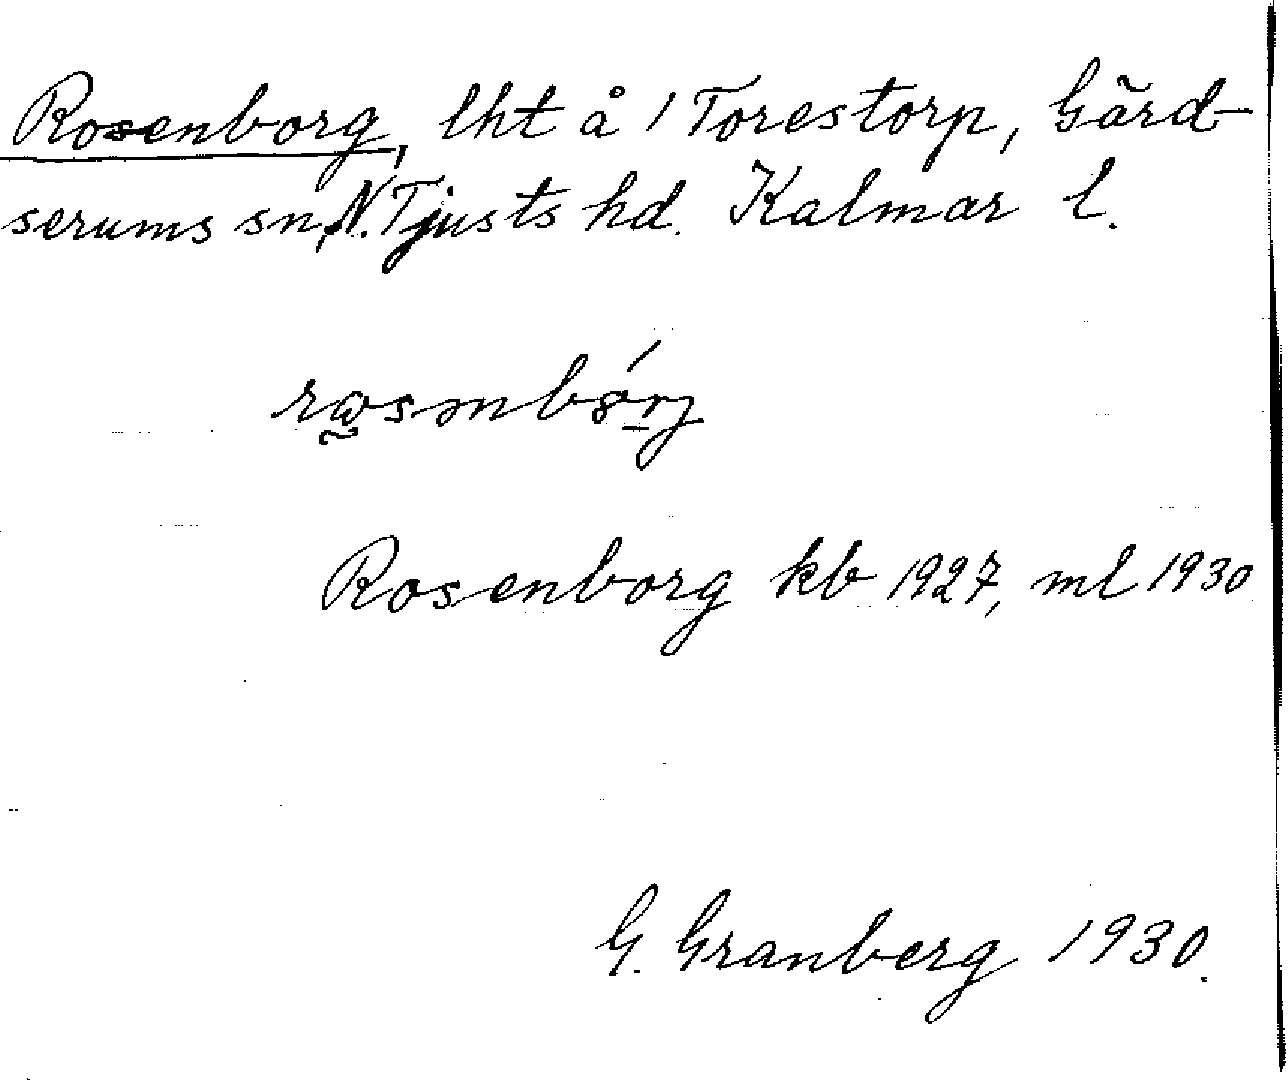 Rosenborg, lht å 1 Torestorp, Gärd-
serums sn, N. Tjusts hd. Kalmar l.
Rosenborg kb 1927, ml 1930
G. Granberg 1930.